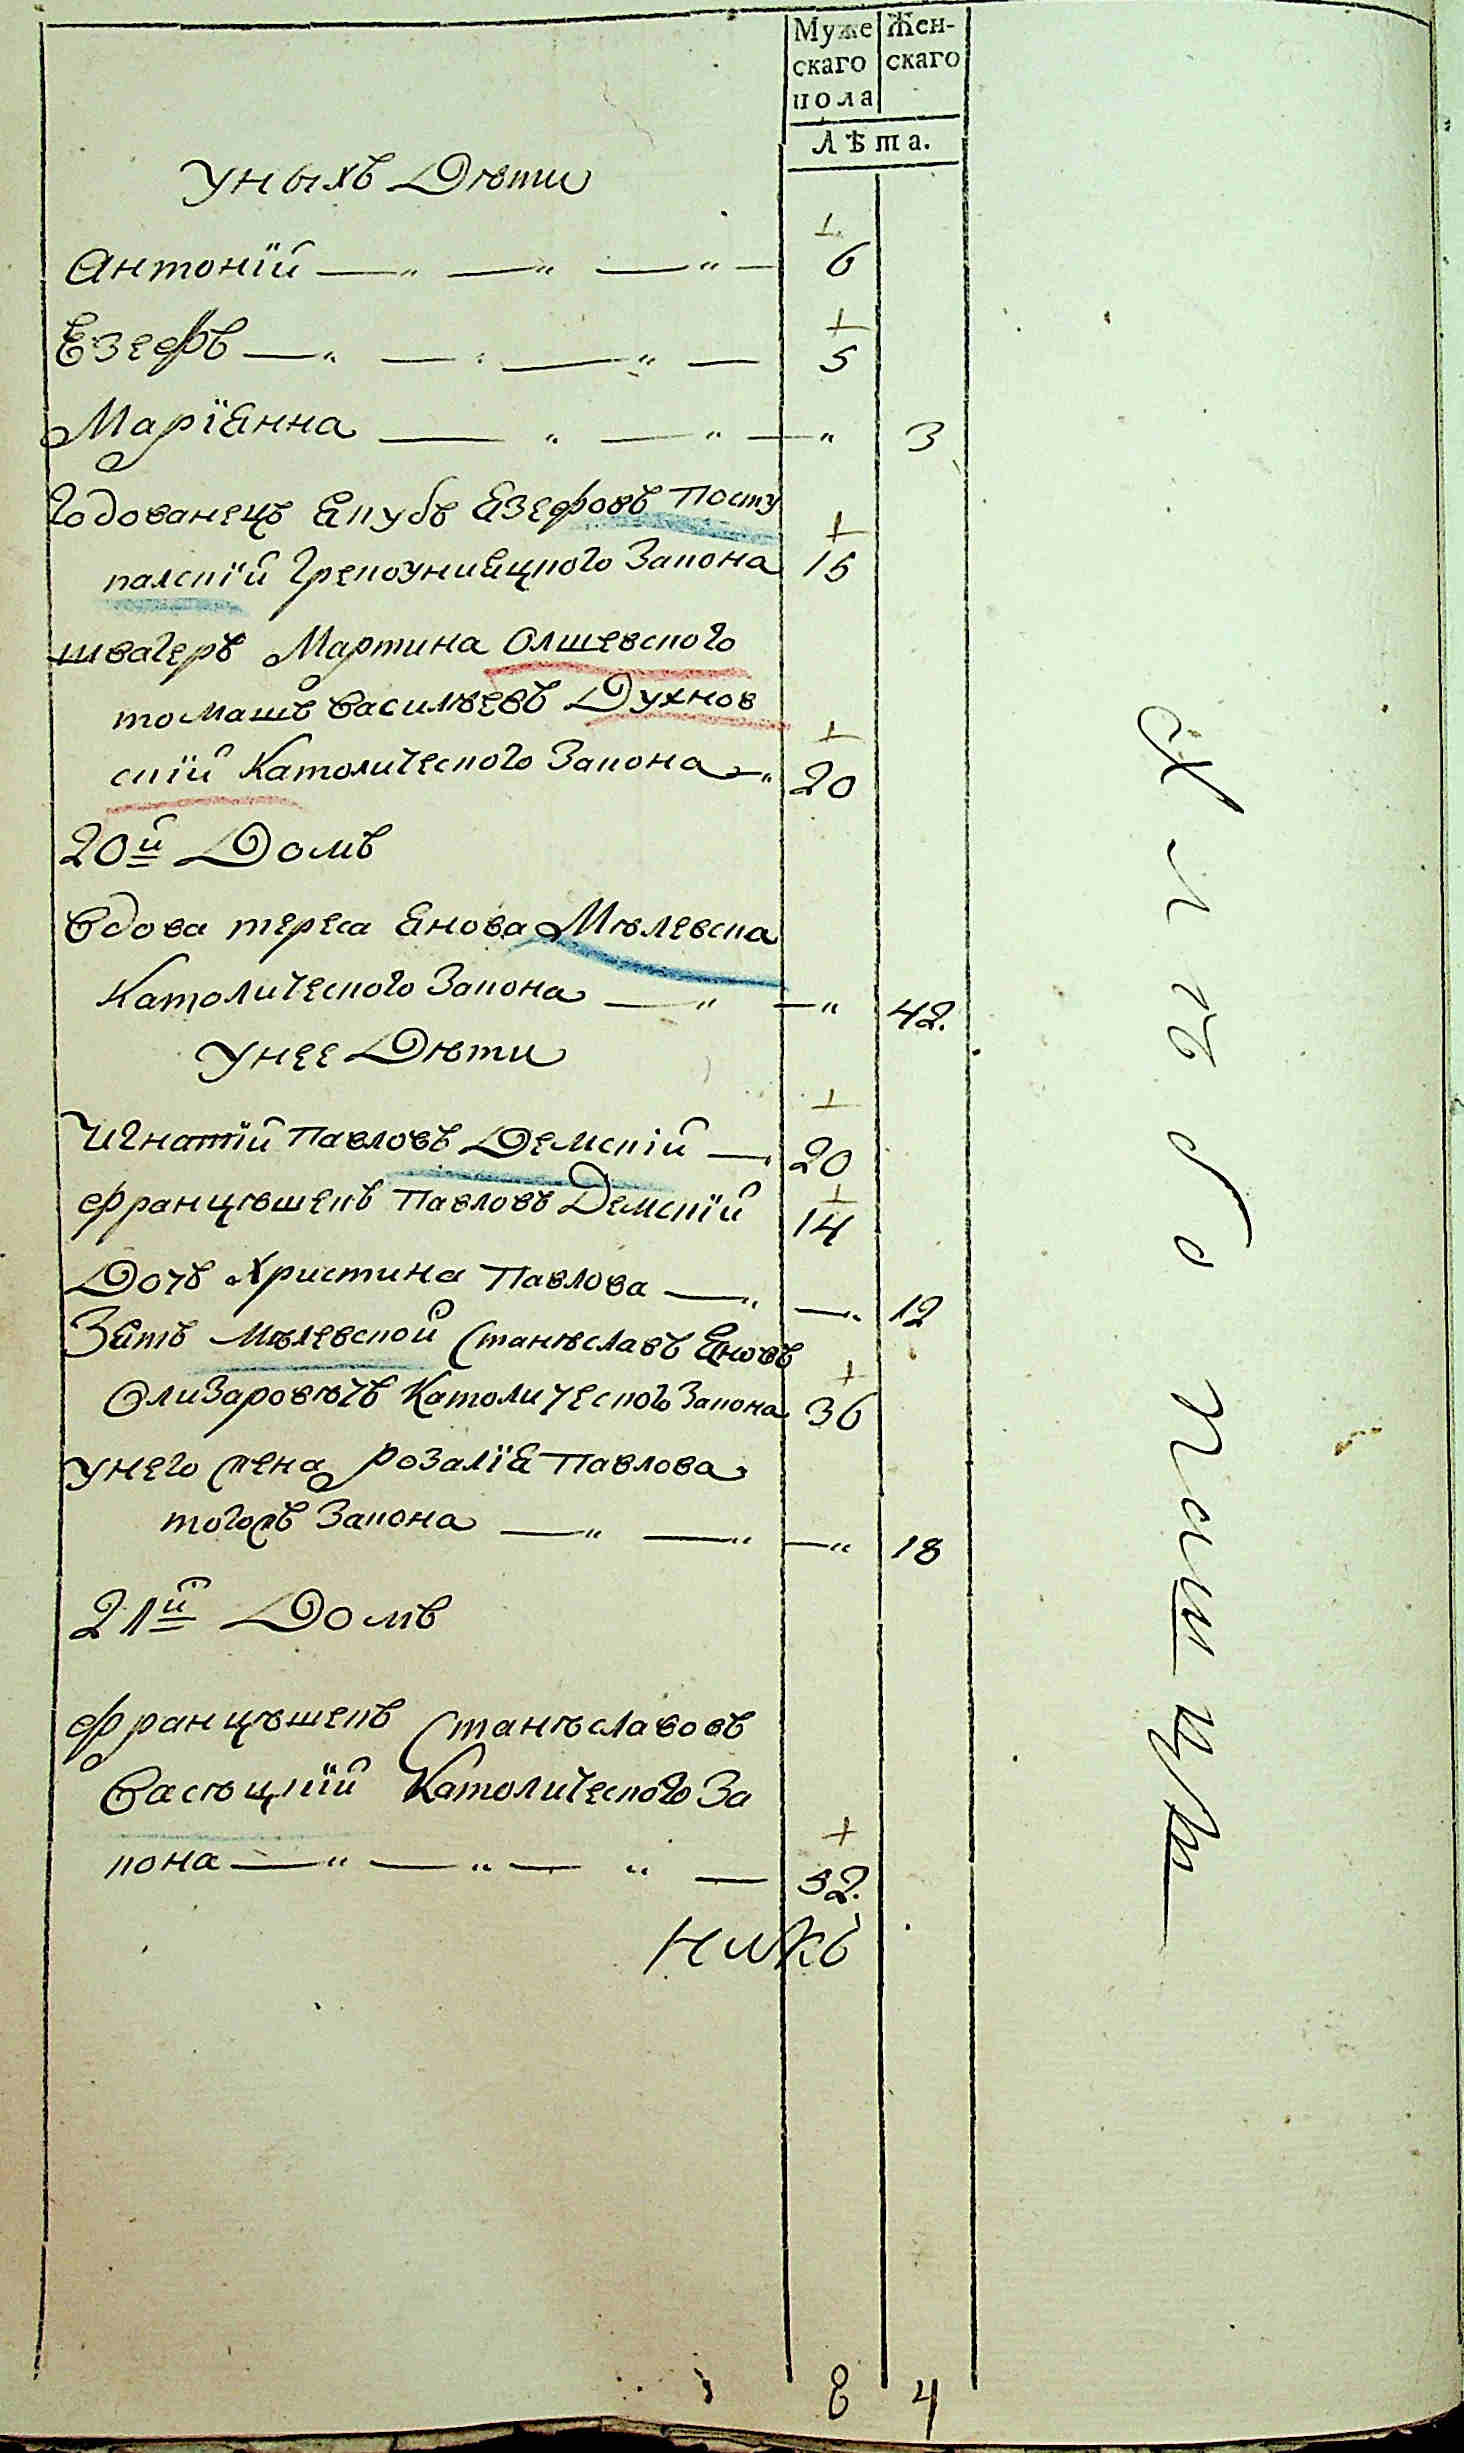 Муже скаго пола
Женскаго
Лѣта.
У ныхъ Дѣти
Антоній — " — " — " — 6
Езефъ — " — " — " — 5
Маріанна — " — " — " 3
Годованецъ Якубъ Язефовъ Посту
калскій Грекоуніяцкого Закона 15
швагеръ Мартина Олшевского
томашъ Василѣевъ Духнов
скій Католического Закона — " 20
20й Домъ
Вдова тереса Янова Мѣлевска
Католического Закона — " — " 42.
У нее Дѣти
Игнатій Павловъ Демскій — " 20
францѣшекъ Павловъ Демскій 14
Дочъ Христина Павлова — " — " 12
Зять Мѣлевской Станѣславъ Яновъ
Олизаровѣчъ Католического Закона 36
У него жена розалія Павлова
тогожъ Закона — " — " — " 18
21й Домъ
францѣшекъ Станѣславовъ
Васѣцкій Католического За
кона — " — " — " — 32.
никъ
8 4
Хлѣбо Пашцы